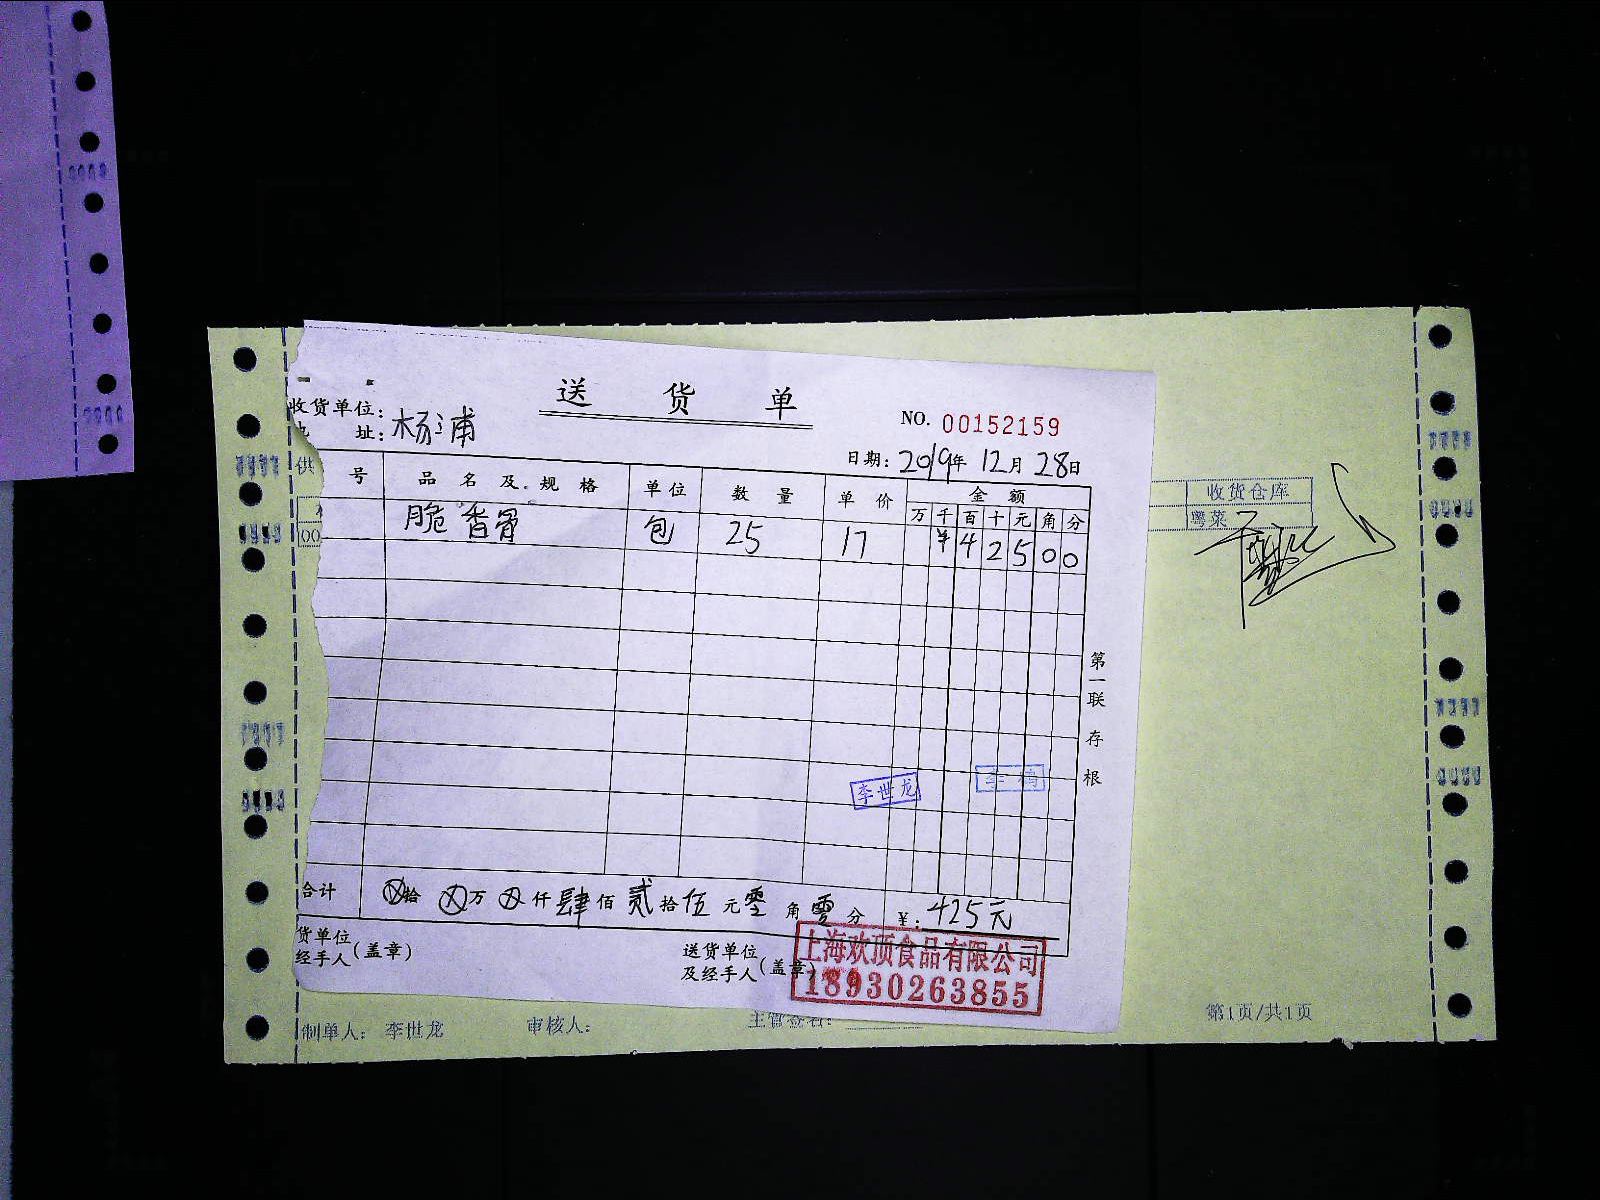 送 货 单
收货单位:
址: 杨浦
NO. 00152159
日期: 2019年 12月 28日
供
号 品名及规格 单位 数量 单价 金额
万 千 百 十 元 角 分
脆香骨 包 25 17 ¥ 4 2 5 0 0
00
收货仓库
粤菜
第一联 存根
李世龙
合计 ⊗拾 ⊗万 ⊗仟 肆佰 贰拾 伍元 零角 零分 ¥: 425元
货单位
经手人(盖章)
送货单位
及经手人(盖章)
上海欢顶食品有限公司
18930263855
制单人: 李世龙 审核人: 主管签名:
第1页/共1页